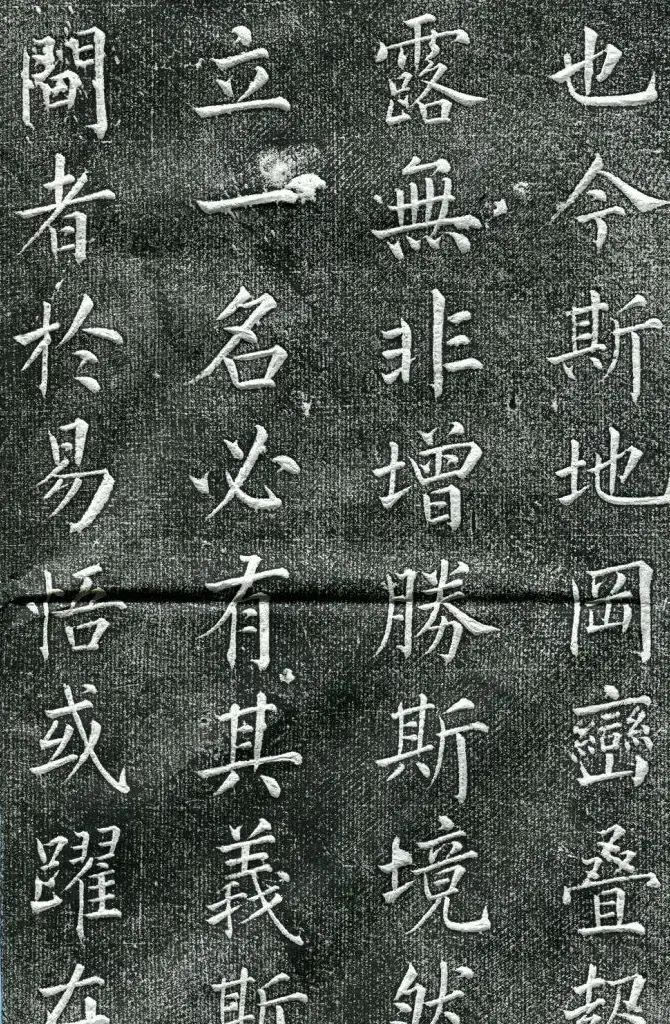 也今斯地岡巒叠起
露無非增勝斯境然
立一名必有其義斯
閻者於易悟或躍在